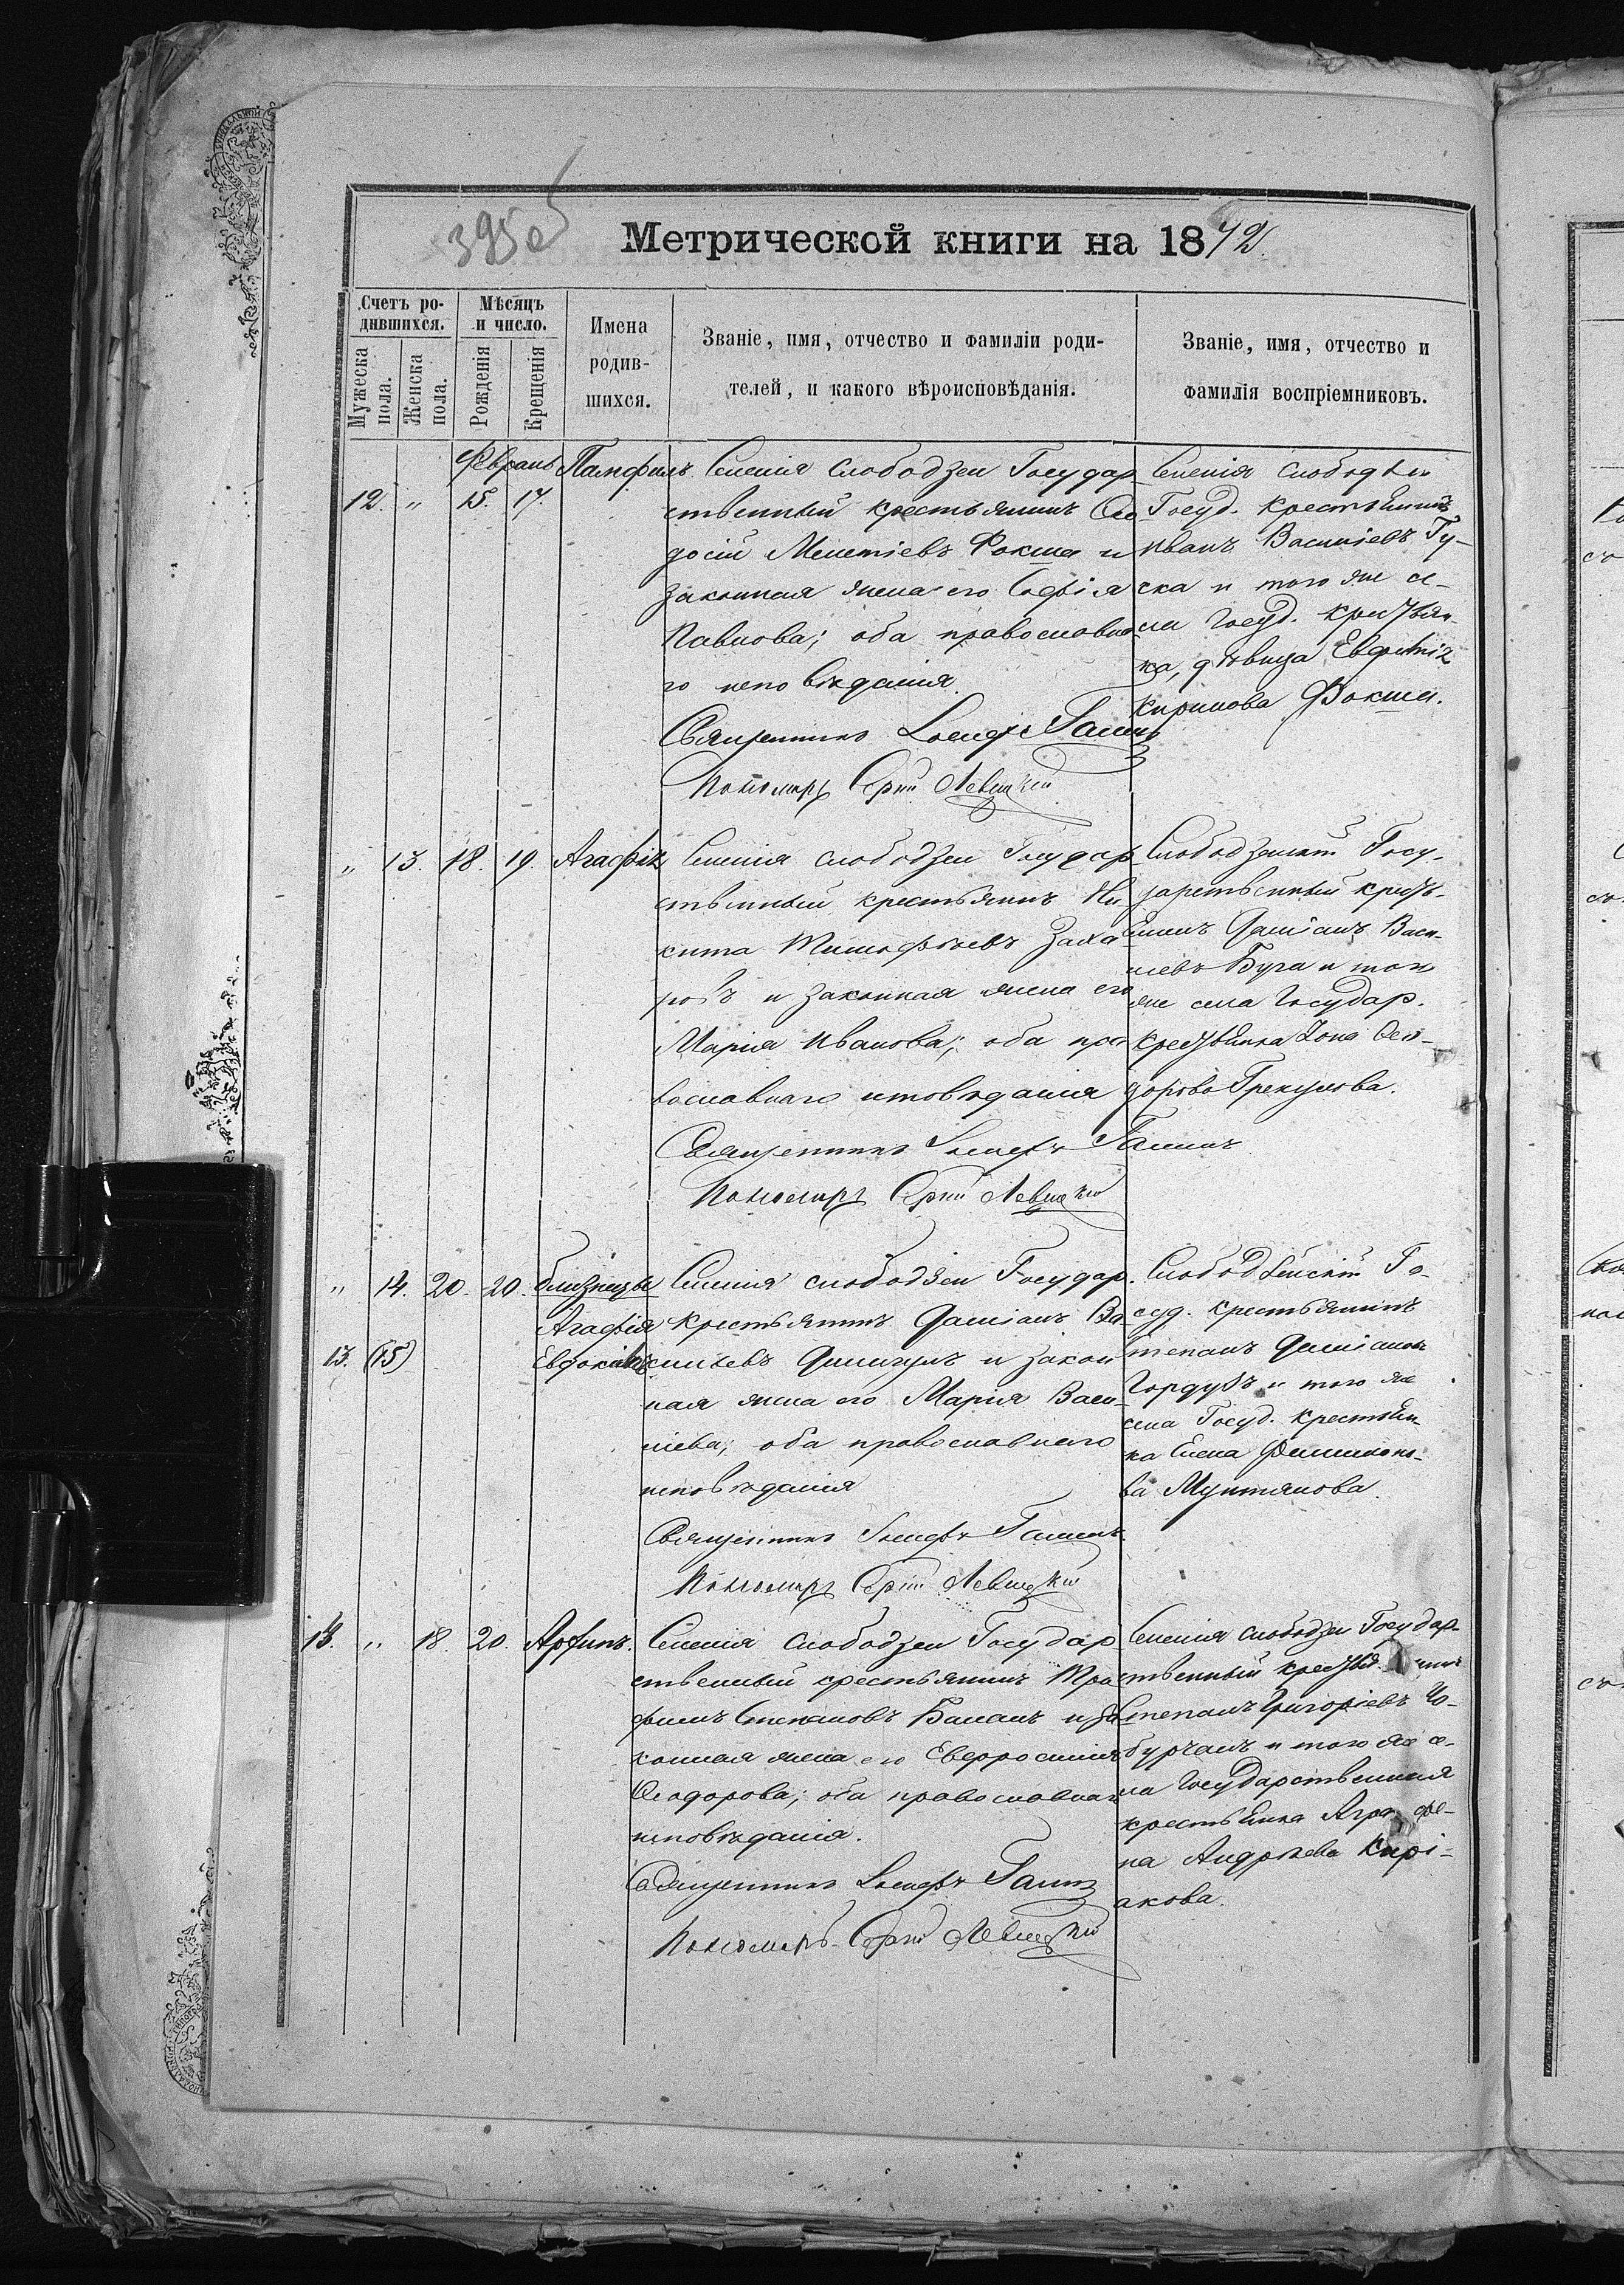 395 об
Метрической книги на 1872.
Счетъ ро-
дившихся.
Мужеска
пола.
Женска
пола.
Мѣсяцъ
и число.
Рожденія
Крещенія
Имена
родив-
шихся.
Званіе, имя, отчество и фамиліи роди-
телей, и какого вѣроисповѣданія.
Званіе, имя, отчество и
фамилія воспріемниковъ.
Февраль
12. " 15. 17. Памфилъ
Селенія Слободзеи Государ
ственный крестьянинъ Ѳео
досій Мелетіевъ Фокша и
законная жена его Софія
Павлова; оба православна
го исповѣданія.
Священникъ
Пономарь Сергій Левицкій
Селенія Слободзеи
Госуд. крестьянинъ
Иванъ Василіевъ Гу-
ска и того же се-
ла Госуд. крестьян-
ка, дѣвица Евфимія
Кирилова Фокша.
" 13. 18. 19. Агафія
Селенія Слободзеи Государ
ственный крестьянинъ Ни
кита Тимофѣевъ Заха
ровъ и законная жена его
Марія Иванова; оба пра
вославнаго исповѣданія
Священникъ
Пономарь Сергій Левицкій
Слободзейскій Госу-
дарственный кресть-
янинъ Даміанъ Васи-
ліевъ Буга и того
же села Государ.
крестьянка Ѳео-
дорова Грекулова.
" 14. 20. 20. близнецы
Агафія
13. (15) Евдокимъ
Селенія Слободзеи Государ.
крестьянинъ Даміанъ Ва
сильевъ и закон
ная жена его Марія Васи-
ліева; оба православнаго
исповѣданія
Священникъ
Пономарь Сергій Левицкій
Слободзейскій Го-
суд. крестьянинъ
Степанъ Даміановъ
и того же
села Госуд. крестьян
ка Елена Филимоно-
ва Мунтянова.
14. " 18. 20.
Селенія Слободзеи Государ
ственный крестьянинъ Тро
фимъ Степановъ Баланъ и за
конная жена его Евфросинія
Ѳеодорова; оба православнаго
исповѣданія.
Священникъ
Пономарь Сергій Левицкій
Селенія Слободзеи Государ-
ственный крестьянинъ
Степанъ Григоріевъ Чо-
бурчанъ и того же се-
ла Государственная
крестьянка Аграфе-
на Андрѣева Кирі-
акова.